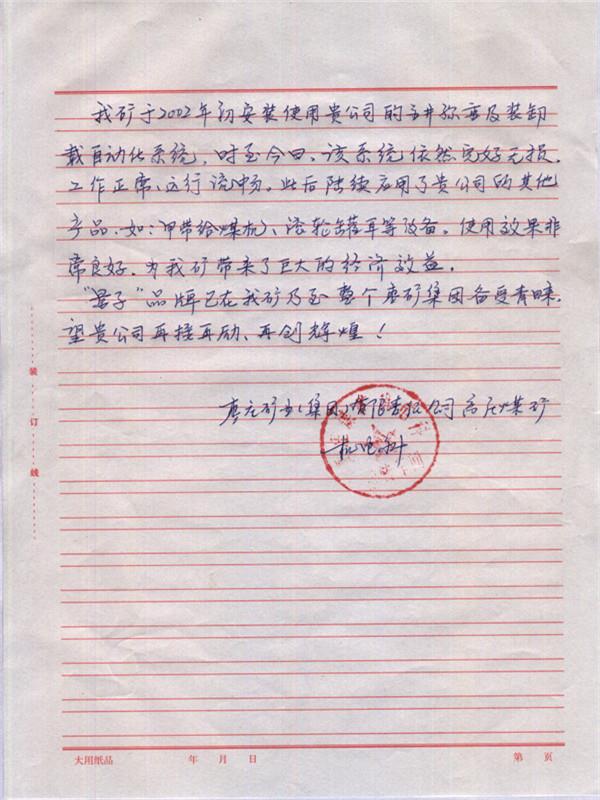 我矿于2002年初安装使用贵公司的主井称重及装卸
载自动化系统，时至今日、该系统依然完好无损.
工作正常、运行流畅。此后陆续启用了贵公司的其他
产品.如:甲带给煤机、滚轮罐耳等设备。使用效果非
常良好.为我矿带来了巨大的经济效益.
"量子"品牌已在我矿乃至整个枣矿集团备受青睐.
望贵公司再接再励、再创辉煌！
枣庄矿业(集团)有限责任公司高庄煤矿
机电科
装
订
线
大用纸品 年 月 日 第 页